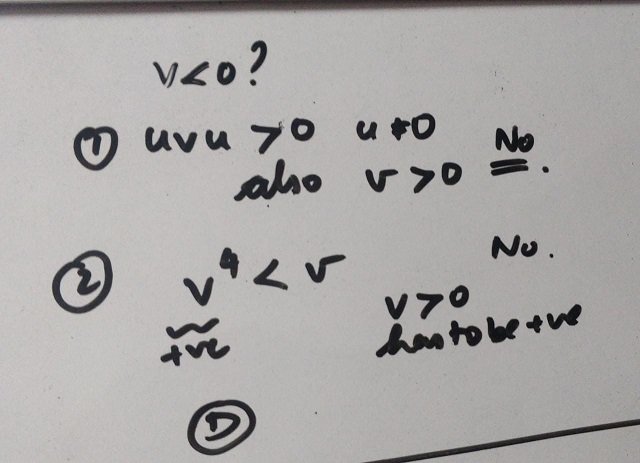 v<0?
① uvu >0 u≠0 No
also v>0 .
② v⁴ < v No.
+ve
v>0
has to be +ve
Ⓓ